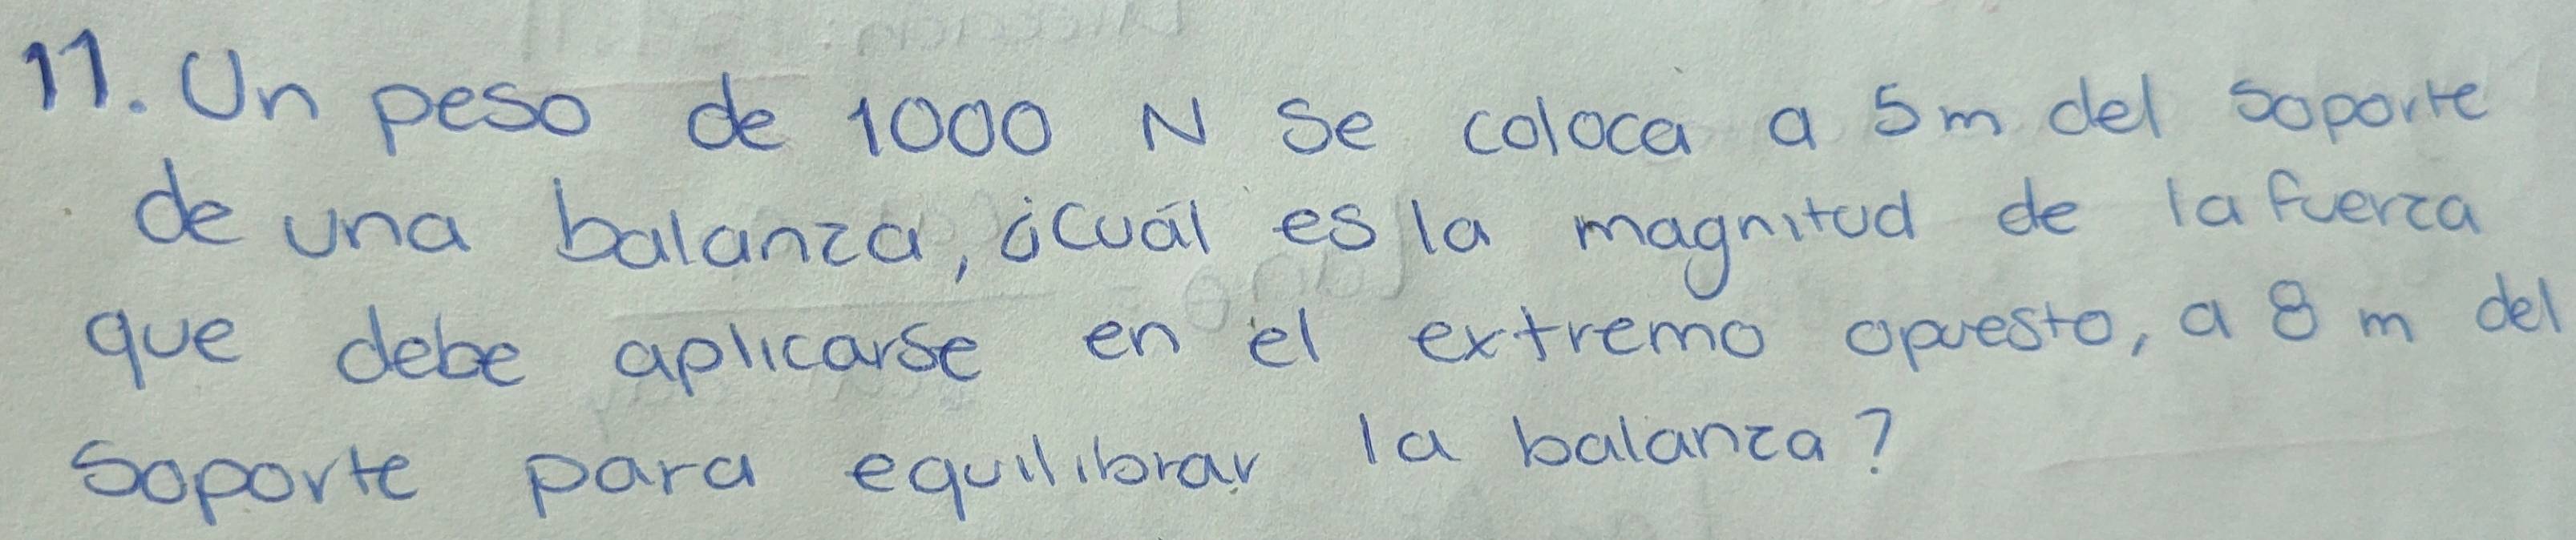 11. Un peso de 1000 N se coloca a 5m del soporte
de una balanza, ¿cuál es la magnitud de la fuerza
que debe aplicarse en el extremo opuesto, a 8 m del
soporte para equilibrar la balanza?